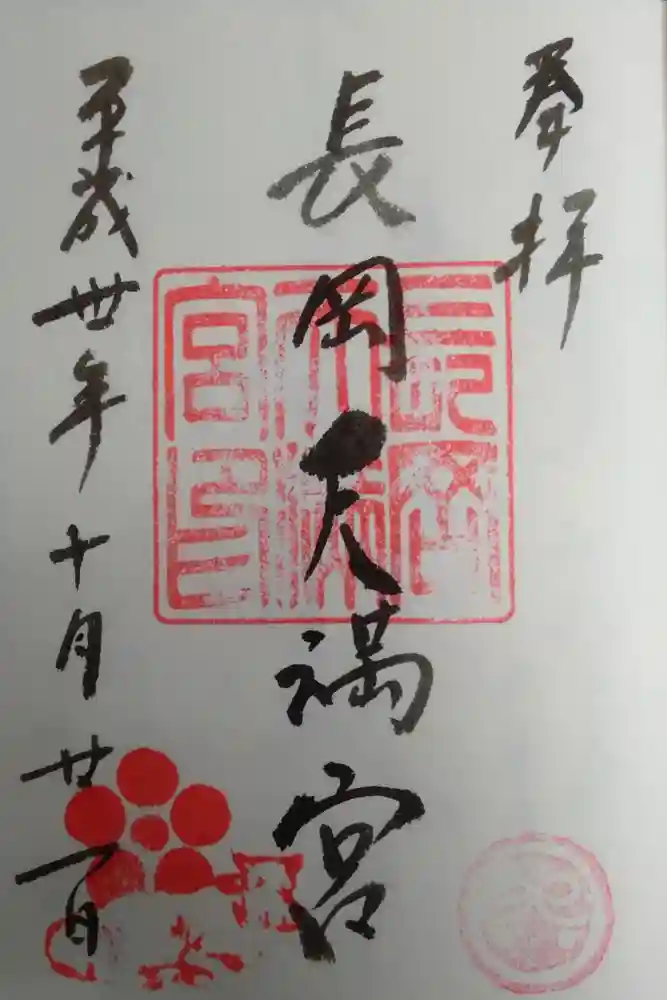 奉拝
長岡天満宮
平成丗年十月廿一日
長岡
天満
宮印